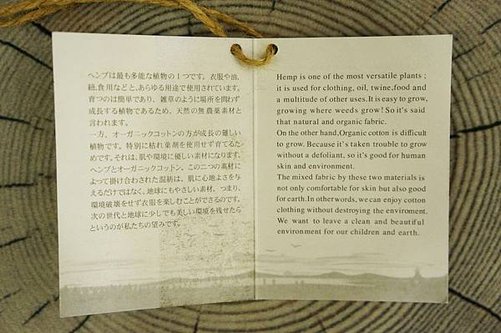 ヘンプは最も多能な植物の1つです。衣服や油、
紐、食用などなど、あらゆる用途で使用されています。
育つのは簡単であり、雑草のように場所を問わず
成長する植物であるため、天然の無農薬素材と
言われます。
一方、オーガニックコットンの方が成長の難しい
植物です。特別に枯れ葉剤を使用せず育てるため
です。それは、肌や環境に優しい素材になります。
ヘンプとオーガニックコットン、この二つの素材に
よって掛け合わされた混紡は、肌に心地よさを与
えるだけではなく、地球にもやさしい素材、つまり、
環境破壊をせず衣服を楽しむことができるのです。
次の世代と地球に少しでも美しい環境を残せたら
というのが私たちの望みです。
Hemp is one of the most versatile plants ;
it is used for clothing, oil, twine,food and
a multitude of other uses.It is easy to grow,
growing where weeds grow! So it's said
that natural and organic fabric.
On the other hand,Organic cotton is difficult
to grow. Because it's taken trouble to grow
without a defoliant, so it's good for human
skin and environment.
The mixed fabric by these two materials is
not only comfortable for skin but also good
for earth.In other words,we can enjoy cotton
clothing without destroying the enviroment.
We want to leave a clean and beautiful
environment for our children and earth.